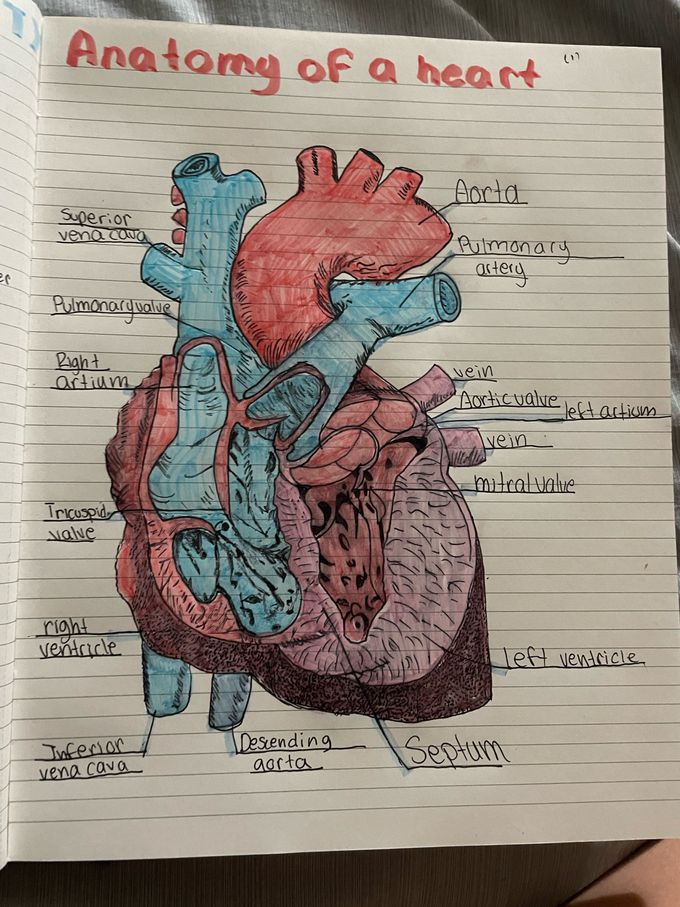 Anatomy of a heart
Superior
vena cava
Pulmonary valve
Right
artium
Tricuspid
valve
right
ventricle
Inferior
vena cava
Descending
aorta
Septum
Aorta
Pulmonary
artery
vein
Aortic valve
left artium
vein
mitral valve
left ventricle